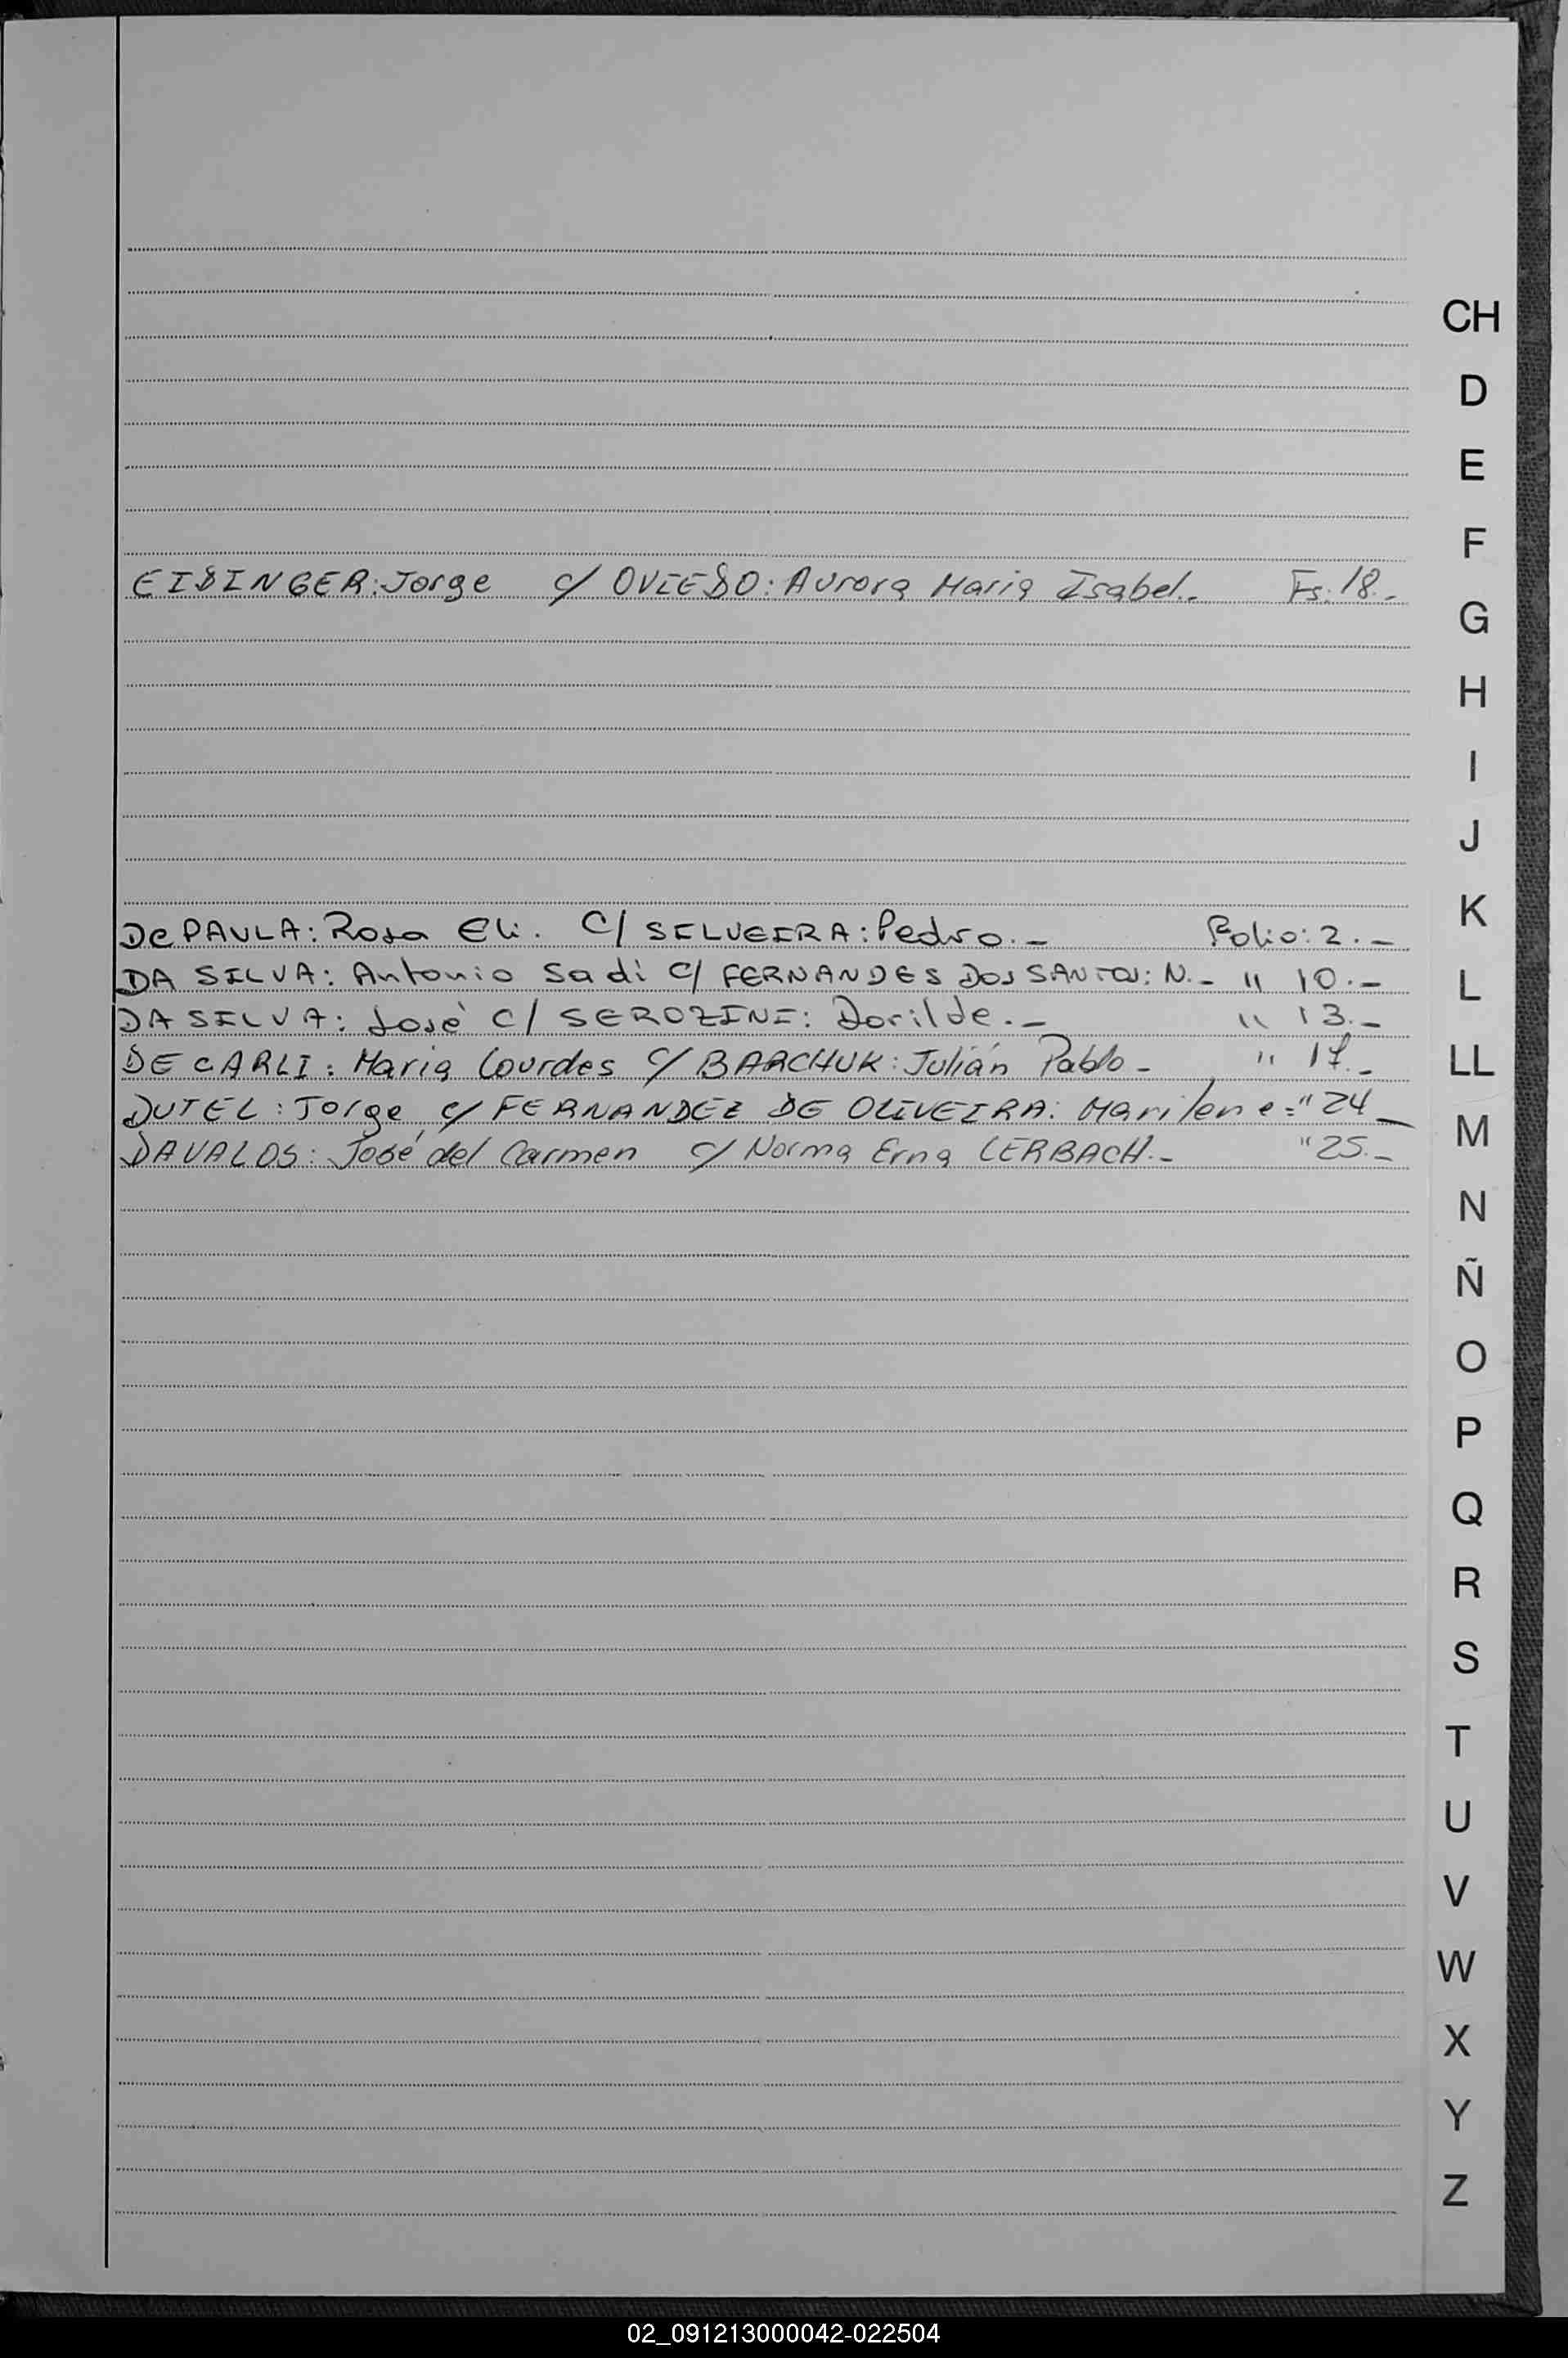 EISINGER: Jorge c/ OVIEDO: Aurora Maria Isabel.- Fs. 18.-
De PAULA: Rosa Eli. C/ SILVEIRA: Pedro.- Folio: 2.-
DA SILVA: Antonio Sadi C/ FERNANDES DOS SANTOS: N.- " 10.-
DA SILVA: José C/ SEROZINI: Dorilde.- " 13.-
DE CARLI: Maria Lourdes C/ BARCHUK: Julián Pablo- " 17.-
DUTEL: Jorge c/ FERNANDEZ DE OLIVEIRA: Marilene=" 24_
DAVALOS: José del Carmen c/ Norma Erna LERBACH.- " 25.-
CH
D
E
F
G
H
I
J
K
L
LL
M
N
Ñ
O
P
Q
R
S
T
U
V
W
X
Y
Z
02_091213000042-022504